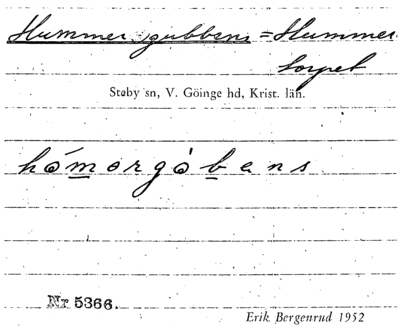 Hummer gubbens = Hummer
torpet
Støby sn, V. Göinge hd, Krist. län.
hómørgòbens
Nr 5366.
Erik Bergenrud 1952